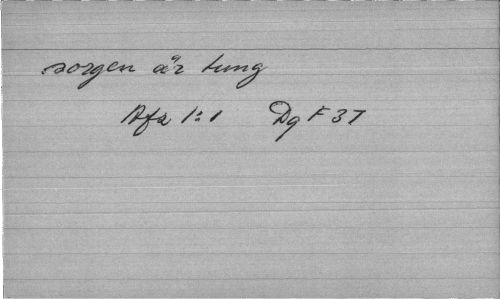 sorgen är tung
Afa 1:1 Dg F 37